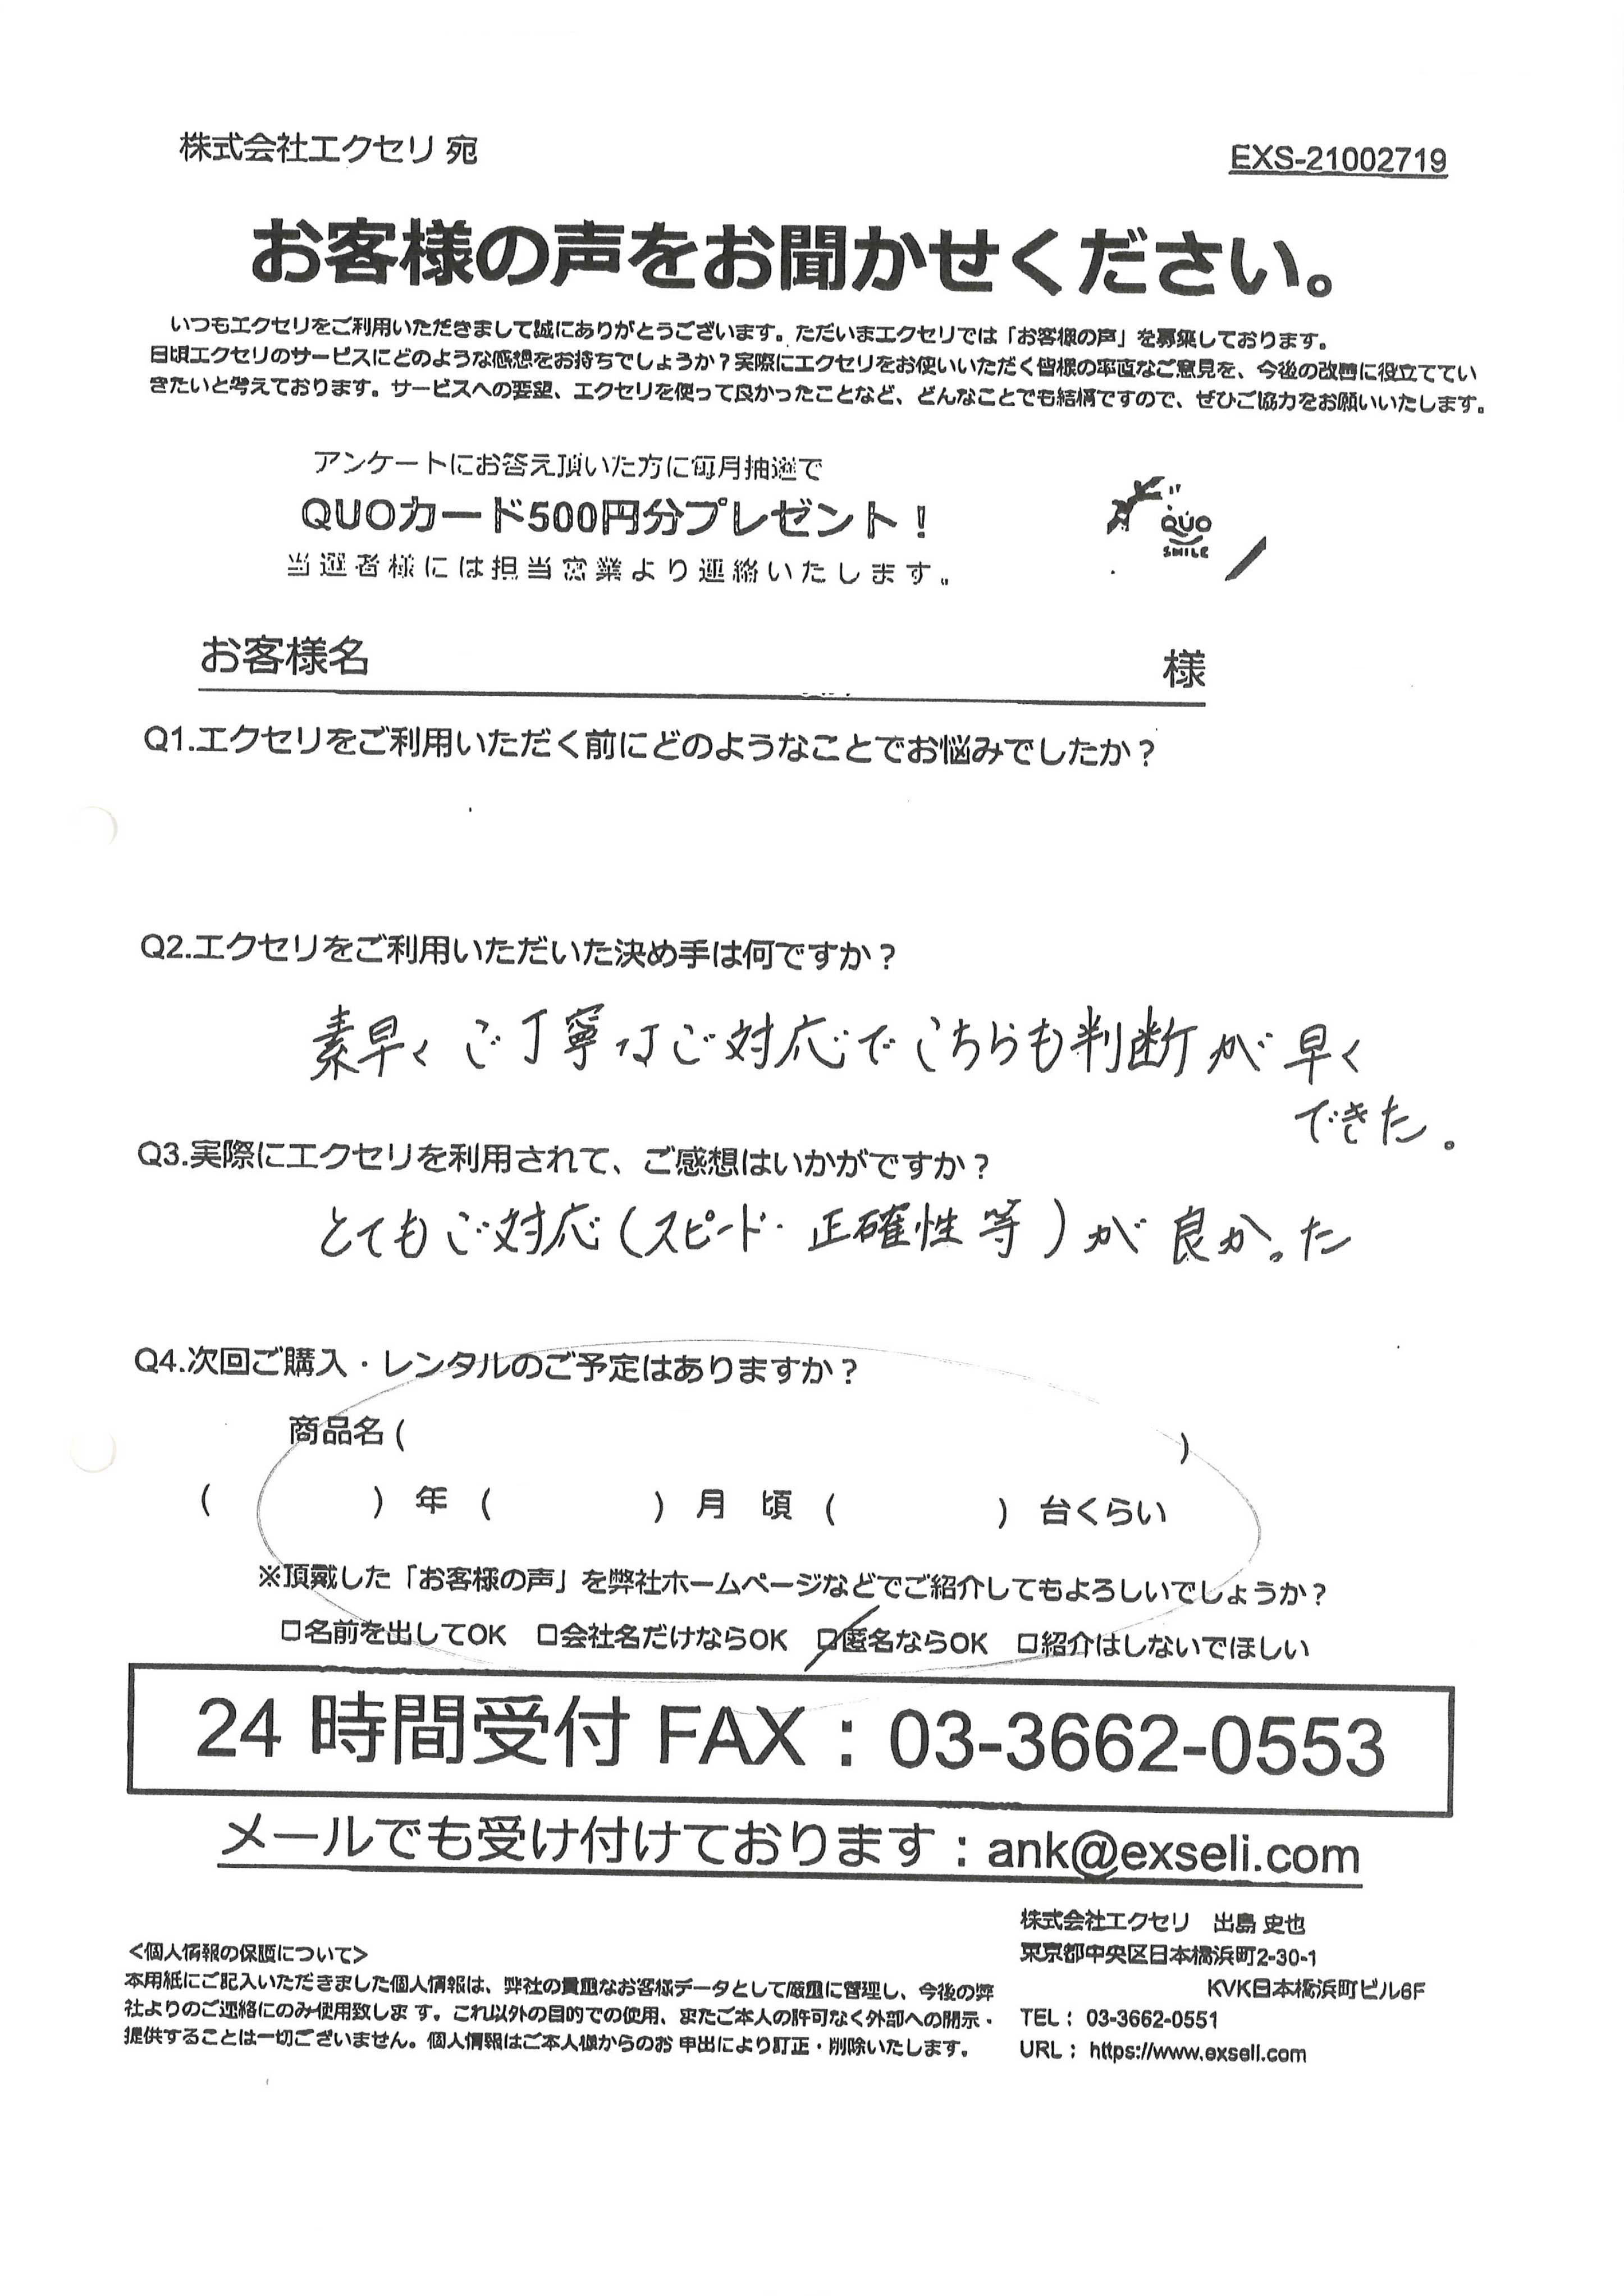 株式会社エクセリ 宛
EXS-21002719
お客様の声をお聞かせください。
いつもエクセリをご利用いただきまして誠にありがとうございます。ただいまエクセリでは「お客様の声」を募集しております。
日頃エクセリのサービスにどのような感想をお持ちでしょうか？実際にエクセリをお使いいただく皆様の率直なご意見を、今後の改善に役立ててい
きたいと考えております。サービスへの要望、エクセリを使って良かったことなど、どんなことでも結構ですので、ぜひご協力をお願いいたします。
アンケートにお答え頂いた方に毎月抽選で
QUOカード500円分プレゼント！
当選者様には担当営業より連絡いたします。
QUO
SMILE
お客様名 様
Q1.エクセリをご利用いただく前にどのようなことでお悩みでしたか？
Q2.エクセリをご利用いただいた決め手は何ですか？
素早くご丁寧なご対応でこちらも判断が早く
できた。
Q3.実際にエクセリを利用されて、ご感想はいかがですか？
とてもご対応（スピード・正確性等）が良かった
Q4.次回ご購入・レンタルのご予定はありますか？
商品名（ ）
（ ）年（ ）月 頃（ ）台くらい
※頂戴した「お客様の声」を弊社ホームページなどでご紹介してもよろしいでしょうか？
□名前を出してOK □会社名だけならOK □匿名ならOK □紹介はしないでほしい
24 時間受付 FAX：03-3662-0553
メールでも受け付けております：ank@exseli.com
＜個人情報の保護について＞
本用紙にご記入いただきました個人情報は、弊社の貴重なお客様データとして厳重に管理し、今後の弊
社よりのご連絡にのみ使用致します。これ以外の目的での使用、またご本人の許可なく外部への開示・
提供することは一切ございません。個人情報はご本人様からのお申出により訂正・削除いたします。
株式会社エクセリ 出島 史也
東京都中央区日本橋浜町2-30-1
KVK日本橋浜町ビル6F
TEL： 03-3662-0551
URL： https://www.exseli.com